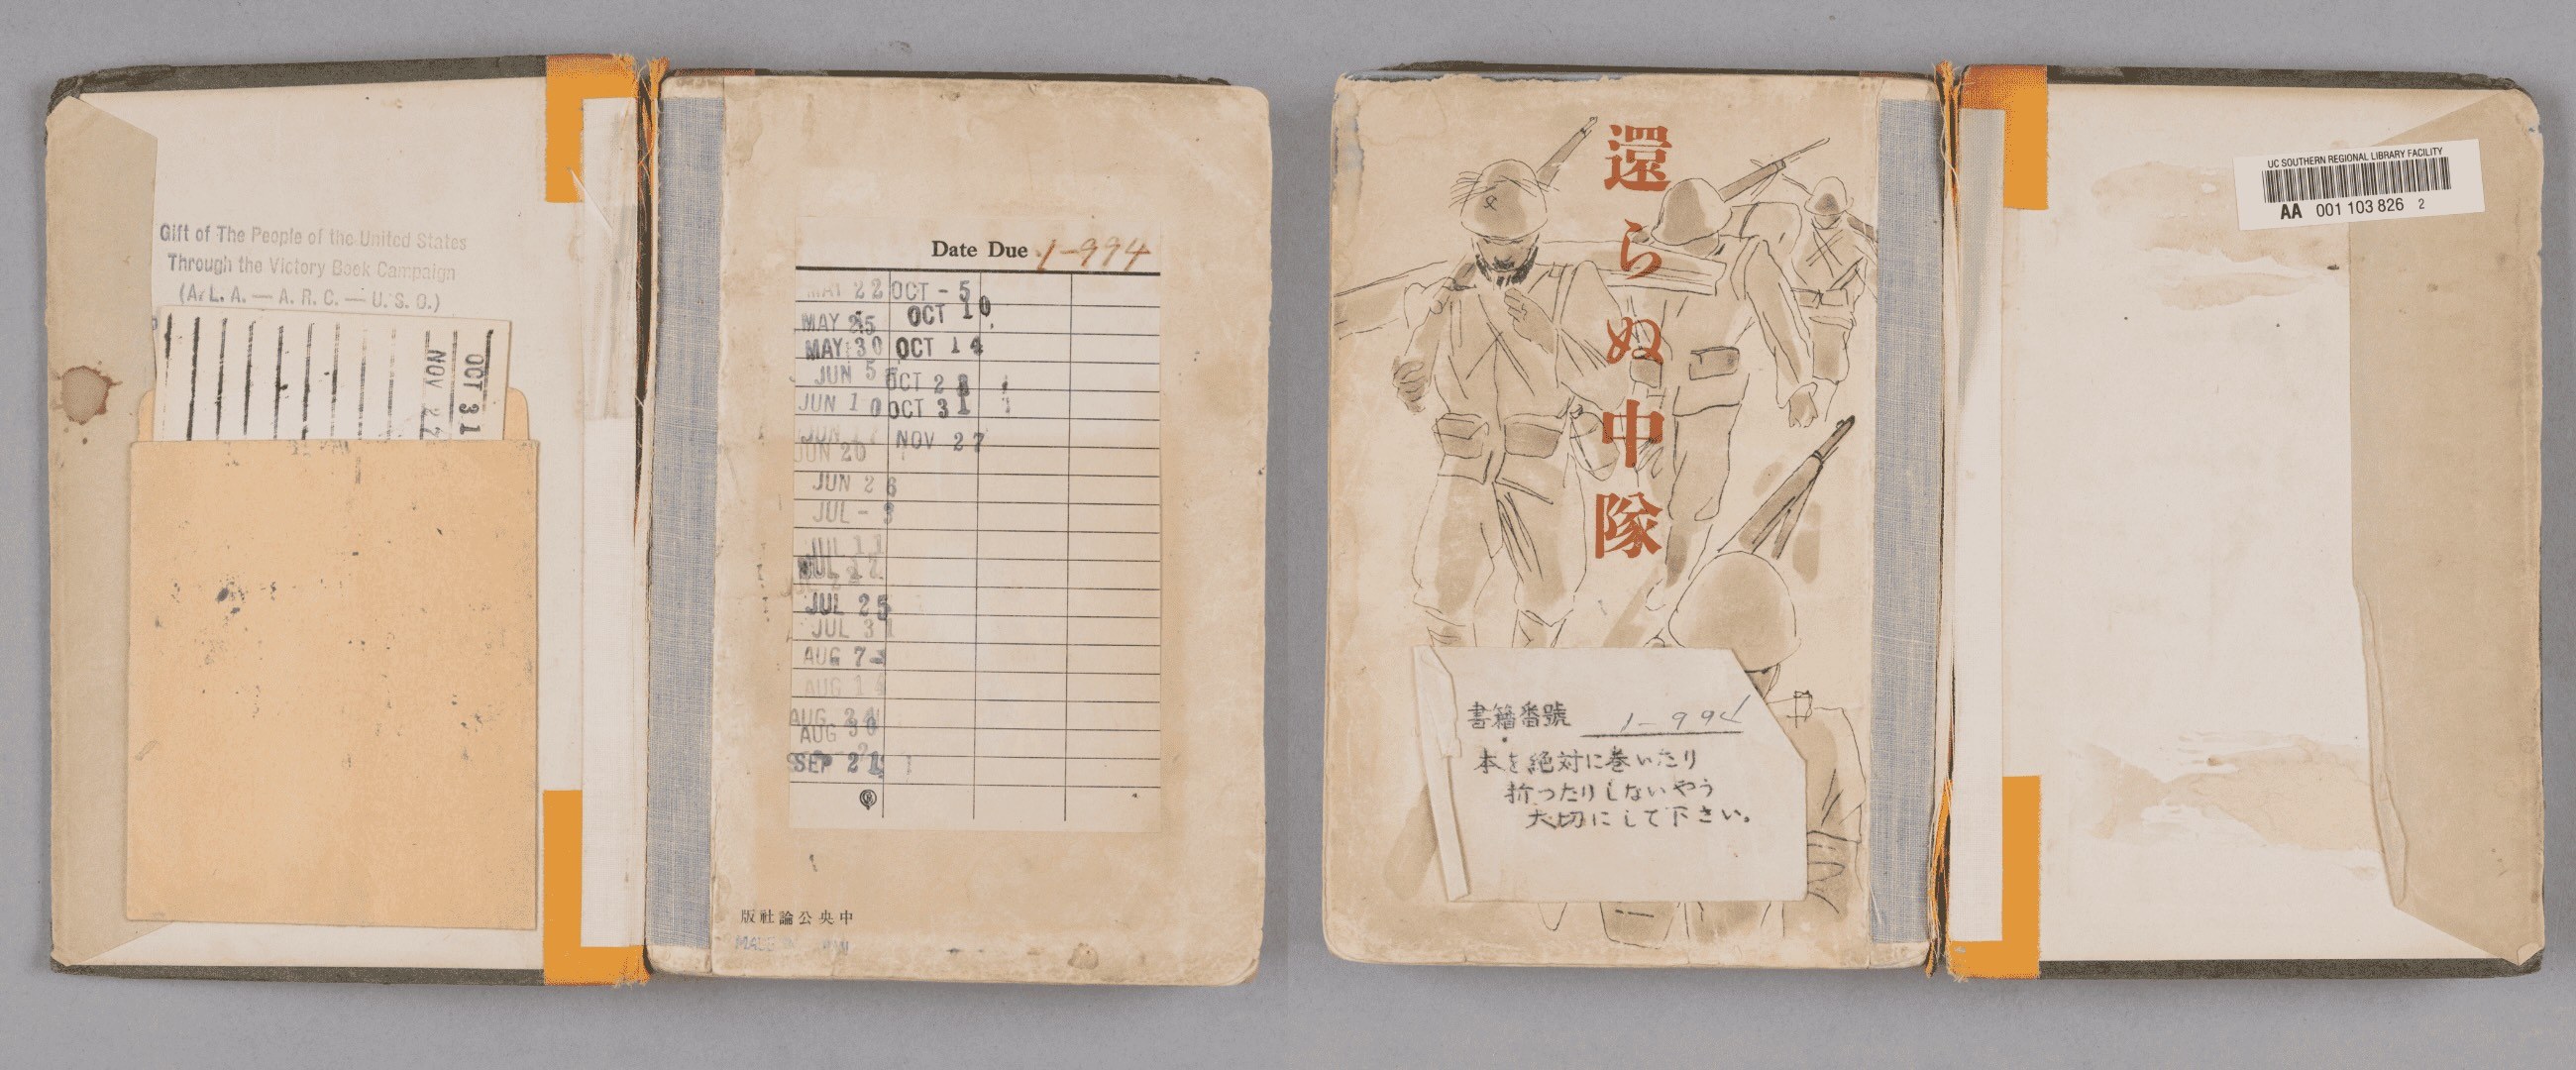 Gift of The People of the United States
Through the Victory Book Campaign
(A. L. A. — A. R. C. — U. S. O.)
OCT 31
NOV 27
Date Due 1-994
MAY 22 OCT - 5
MAY 25 OCT 10
MAY 30 OCT 14
JUN 5 OCT 2
JUN 10 OCT 31
JUN 17 NOV 27
JUN 20
JUN 26
JUL - 3
JUL 11
JUL 17
JUL 25
JUL 31
AUG 7
AUG 14
AUG
AUG 30
SEP 21
版社論公央中
MADE IN JAPAN
還らぬ中隊
書籍番號 1-994
本を絶対に巻いたり
折つたりしないやう
大切にして下さい。
UC SOUTHERN REGIONAL LIBRARY FACILITY
AA 001 103 826 2